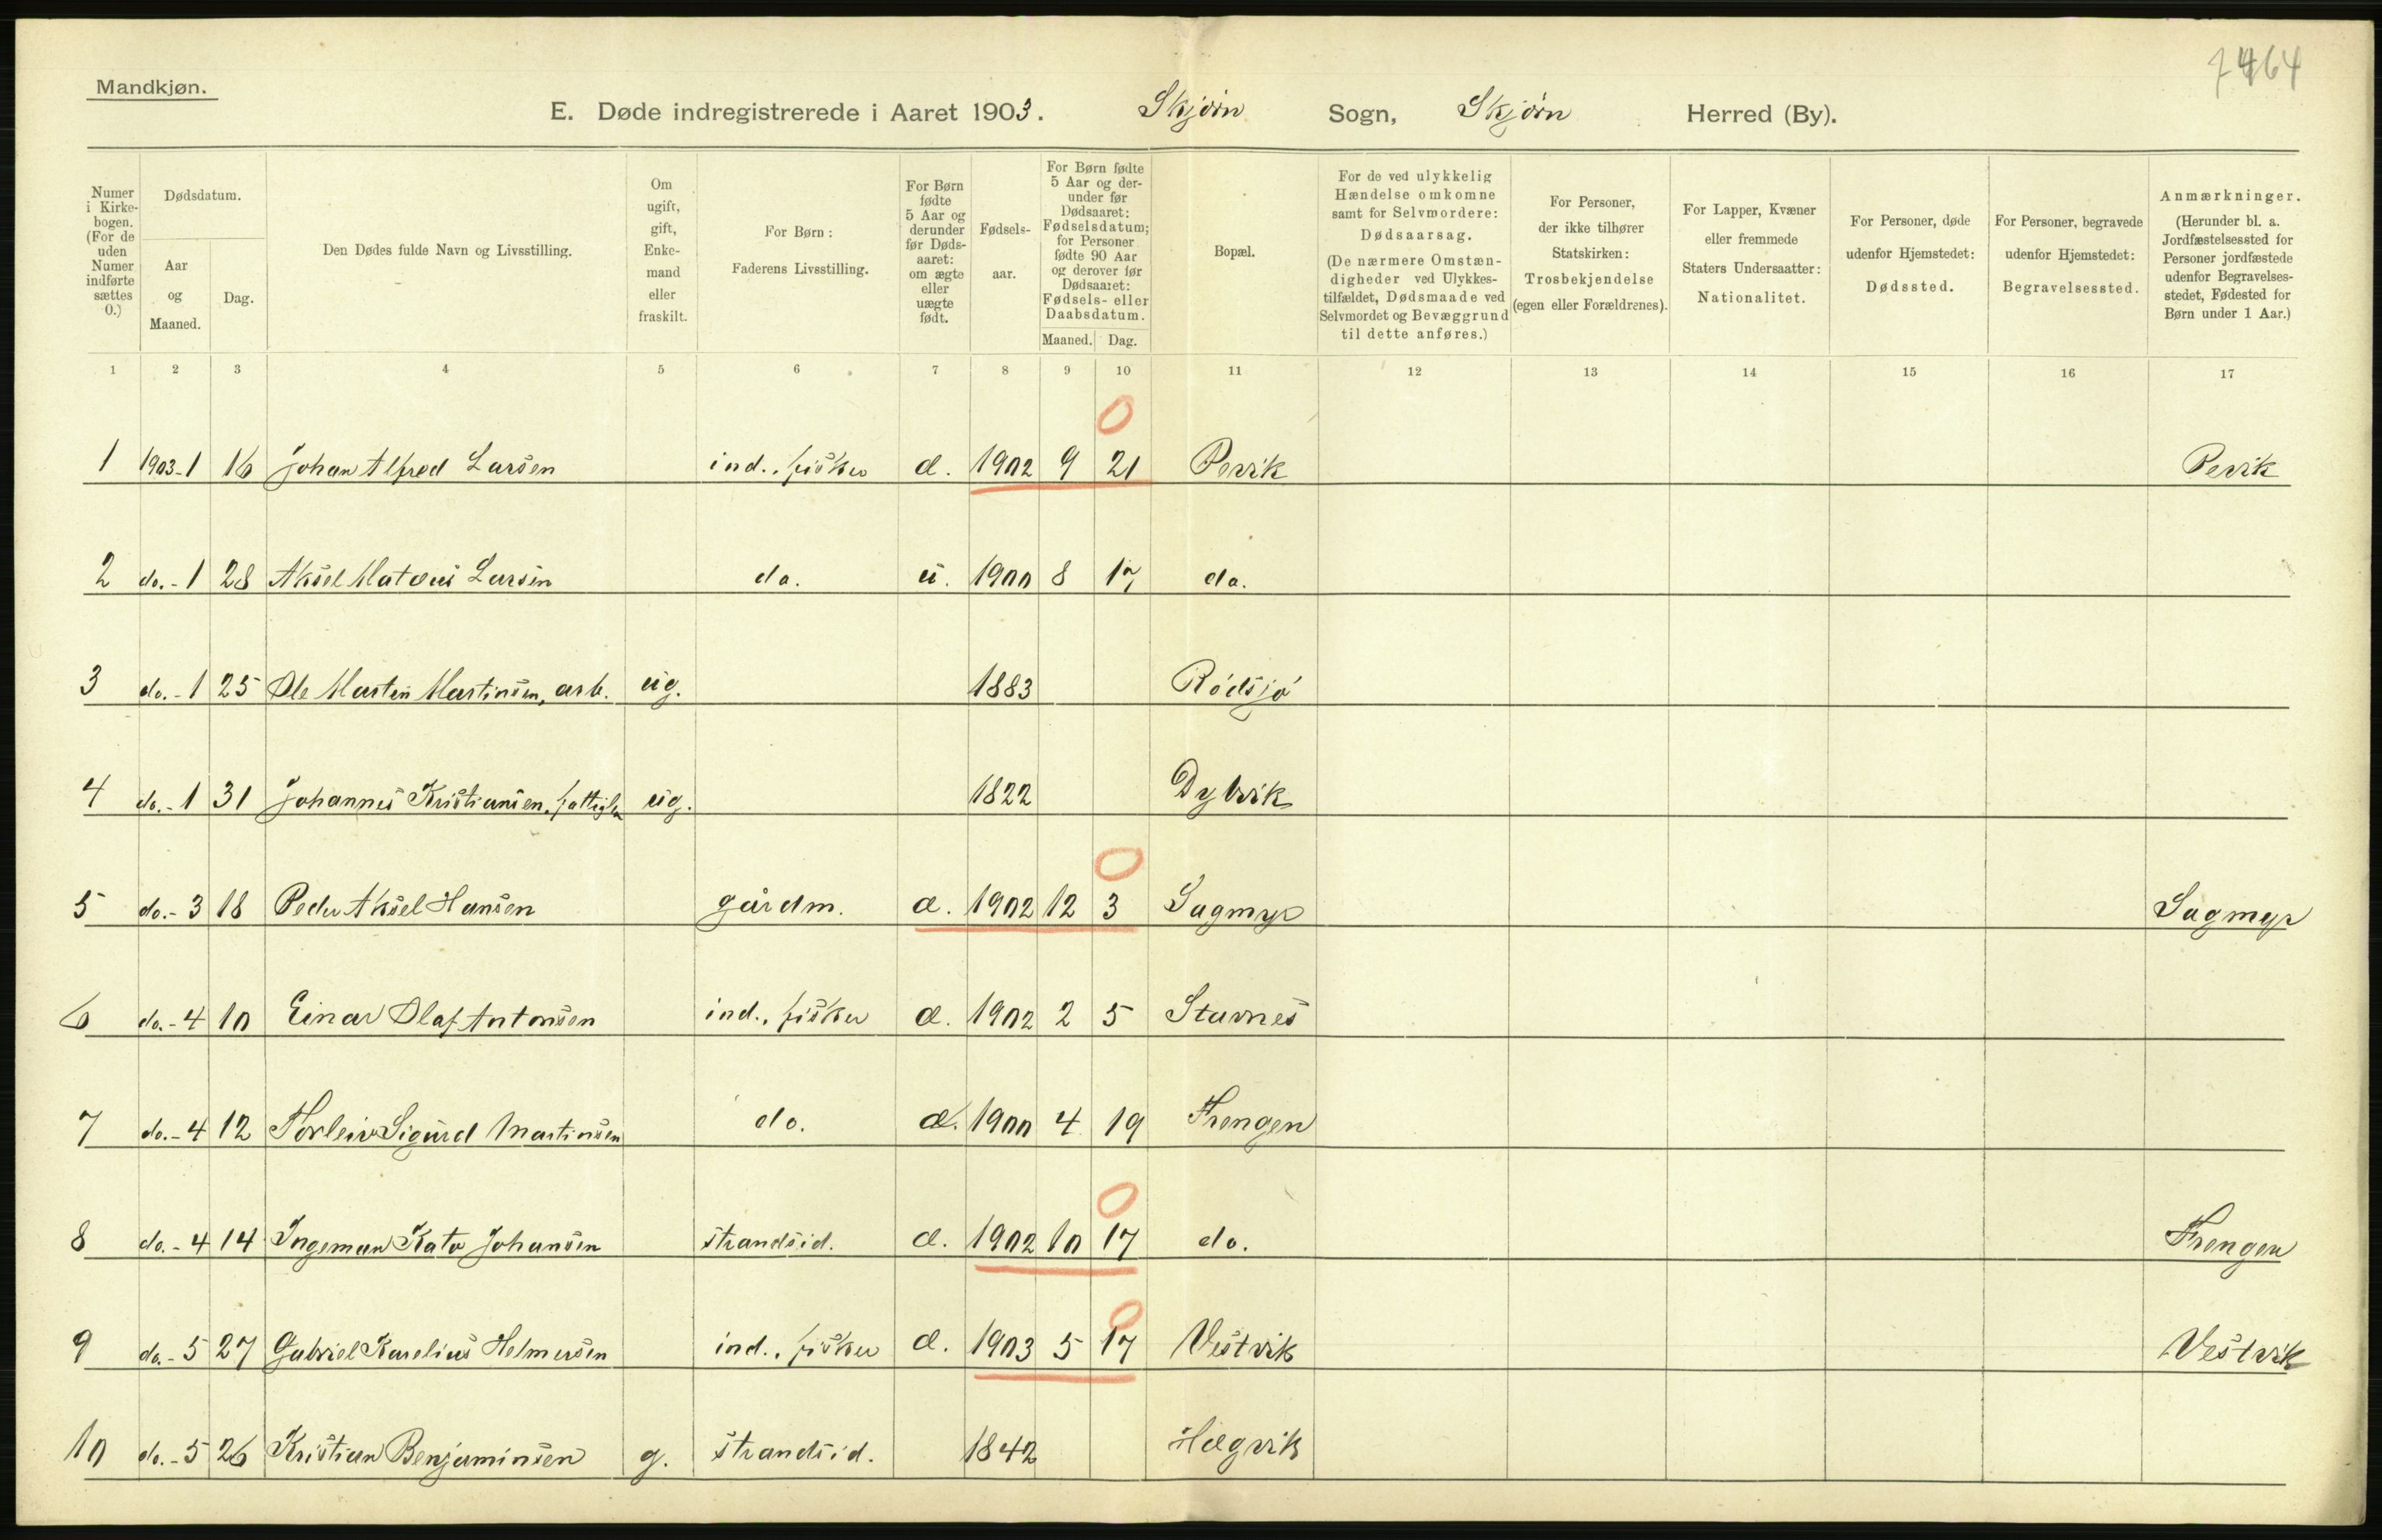 7464
Mandkjøn.
E. Døde indregistrerede i Aaret 1903. Skjörn Sogn, Skjörn Herred (By).
Numer i Kirkebogen. (For de uden Numer indførte sættes 0.)
Dødsdatum.
Aar og Maaned.
Dag.
Den Dødes fulde Navn og Livsstilling.
Om ugift, gift, Enkemand eller fraskilt.
For Børn: Faderens Livsstilling.
For Børn fødte 5 Aar og derunder før Dødsaaret: om ægte eller uægte født.
Fødselsaar.
For Børn fødte 5 Aar og derunder før Dødsaaret: Fødselsdatum; for Personer fødte 90 Aar og derover før Dødsaaret: Fødsels- eller Daabsdatum.
Maaned. Dag.
Bopæl.
For de ved ulykkelig Hændelse omkomne samt for Selvmordere: Dødsaarsag. (De nærmere Omstændigheder ved Ulykkestilfældet, Dødsmaade ved Selvmordet og Bevæggrund til dette anføres.)
For Personer, der ikke tilhører Statskirken: Trosbekjendelse (egen eller Forældrenes).
For Lapper, Kvæner eller fremmede Staters Undersaatter: Nationalitet.
For Personer, døde udenfor Hjemstedet: Dødssted.
For Personer, begravede udenfor Hjemstedet: Begravelsessted.
Anmærkninger. (Herunder bl. a. Jordfæstelsessted for Personer jordfæstede udenfor Begravelsesstedet, Fødested for Børn under 1 Aar.)
1 2 3 4 5 6 7 8 9 10 11 12 13 14 15 16 17
0
1 1903-1 16 Johan Alfred Larsen ind., fisker æ. 1902 9 21 Pevik Pevik
2 do.-1 28 Aksel Matæus Larsen do. u. 1900 8 17 do.
3 do.-1 25 Ole Martin Martinsen, arb. ug. 1883 Rödsjö
4 do.-1 31 Johannes Kristiansen, fattigl. ug. 1822 Dylvik
0
5 do.-3 18 Peder Aksel Hansen gårdm. æ. 1902 12 3 Sagmyr Sagmyr
6 do.-4 10 Einar Olaf Antonsen ind., fisker æ. 1902 2 5 Stavnes
7 do.-4 12 Torleiv Sigurd Martinsen do. æ. 1900 4 19 Frengen
0
8 do.-4 14 Ingeman Kato Johansen strandsid. æ. 1902 10 17 do. Frengen
0
9 do.-5 27 Gabriel Karelius Helmersen ind., fisker æ. 1903 5 17 Vestvik Vestvik
10 do.-5 26 Kristian Benjaminsen g. strandsid. 1842 Hægvik